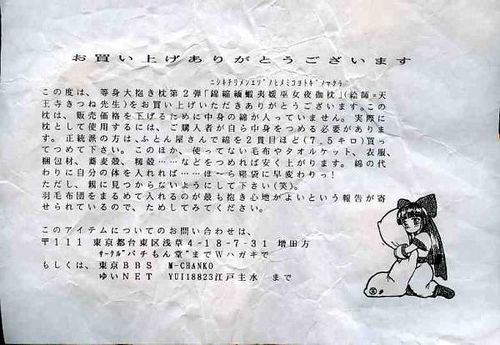 お買い上げありがとうございます
ニシキチリメンエゾノヒメミコヨトギノマクラ
この度は、等身大抱き枕第2弾「錦縮緬蝦夷媛巫女夜伽枕」(絵師=天
王寺きつね先生)をお買い上げいただきありがとうございます。この
枕は、販売価格を下げるために中身の綿が入っていません。実際に
枕として使用するには、ご購入者が自ら中身をつめる必要がありま
す。正統派の方は、ふとん屋さんで綿を2貫目ほど(7.5キロ)買
ってつめて下さい。このほか、使ってない毛布やタオルケット、衣服、
梱包材、蕎麦殻、籾殻……などをつめれば安く上がります。綿の代
わりに自分の体を入れれば……ほ~ら寝袋に早変わりっ!
ただし、親に見つからないようにして下さい(笑)。
羽毛布団をまるめて入れるのが最も抱き心地がよいという報告が寄
せられているので、ためしてみてください。
このアイテムについてのお問い合わせは、
〒111 東京都台東区浅草4-18-7-31 増田方
サークル"パチもん堂"までWハガキで
もしくは、東京BBS M-CHANKO
ゆいNET YUI18823江戸主水 まで